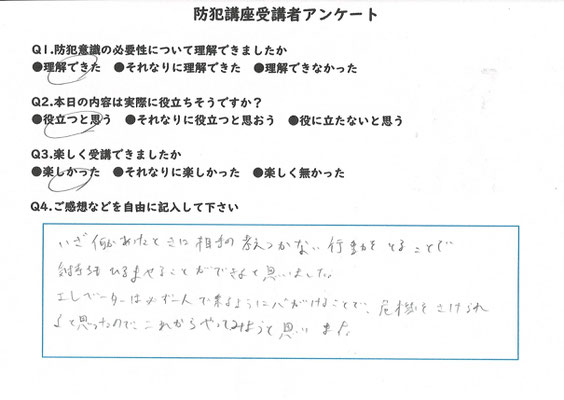 防犯講座受講者アンケート
Q1.防犯意識の必要性について理解できましたか
●理解できた ●それなりに理解できた ●理解できなかった
Q2.本日の内容は実際に役立ちそうですか？
●役立つと思う ●それなりに役立つと思おう ●役に立たないと思う
Q3.楽しく受講できましたか
●楽しかった ●それなりに楽しかった ●楽しく無かった
Q4.ご感想などを自由に記入して下さい
いざ何かあったときは相手の考えつかない行動をとることで
ひるませることができると思いました。
エレベーターは必ず一人で乗るように心がけることで、危機をさけられ
ると思ったので、これからやってみようと思います。